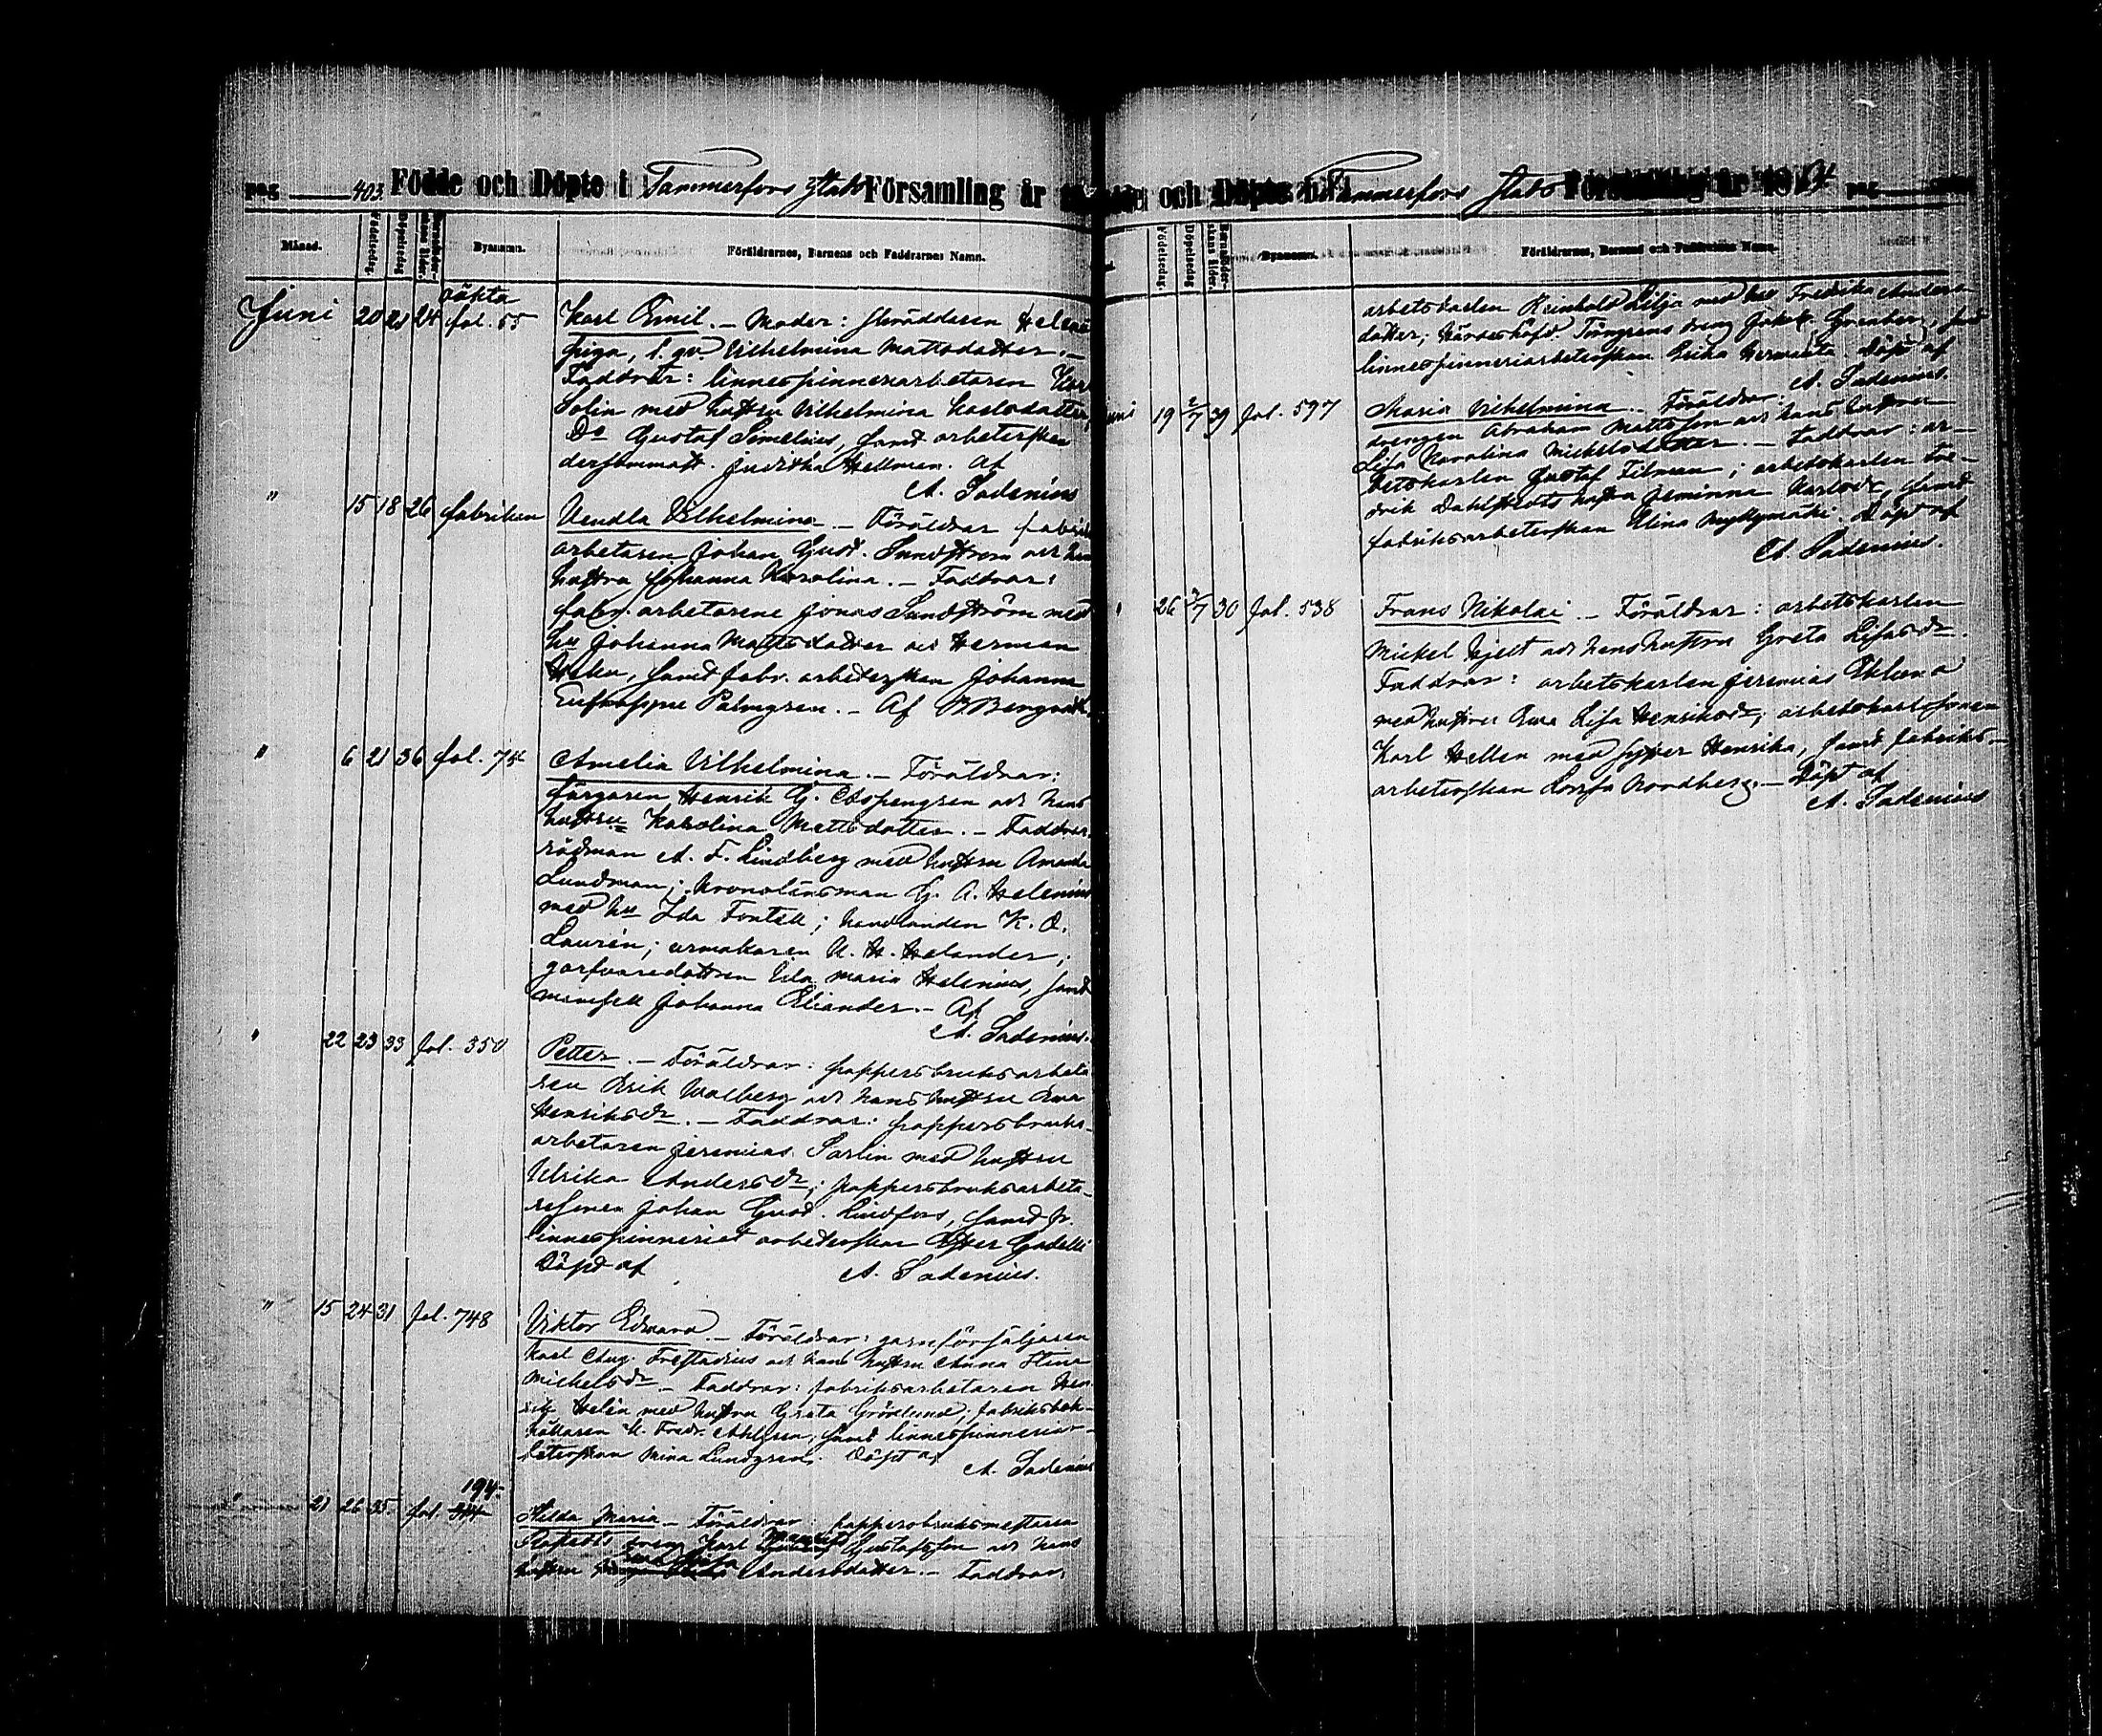 pag 403. Födde och Döpte i Tammerfors Stads Församling år
Månad. Födelsedag. Döpelsedag Barnaföderskans ålder. Bynamn. Föräldrarnes, Barnens och Faddrarnes Namn.
oäkta
Juni 20 21 24 fol. 65 Karl Emil. — Moder: skräddaren
piga, l. qv. Vilhelmina Mattsdotter. —
Faddrar: linnespinneriarbetaren Karl
Solin med hustru Vilhelmina Karlsdotter,
Do Gustaf Simelius, samt arbeterskan
dersammast. Juditha Hellman. Af
A. Sadenius
" 15 18 26 fabriken Vendla Vilhelmina — Föräldrar fabriks
arbetaren Johan Gust. Sundström och
hustru Johanna Karolina. — Faddrar:
fabr. arbetarene Jonas Sundström med
hu Johanna Mattsdotter och Herman
samt fabr. arbeterskan Johanna
Palmgren. — Af
" 6 21 36 fol. 74 Amelia Vilhelmina. — Föräldrar:
färgaren Henrik G. Aspengren och hans
hustru Karolina Mattsdotter. — Faddrar
rådman A. F. Lindberg med hustru Amanda
Lundman; kronolänsman G. A. Helenius
med hu Ida Fontell; handlanden K. O.
Laurén; urmakaren K. H. Helander;
garfvaredottren Ida Maria Helenius, samt
mamsell Johanna Eliander. — Af
A. Sadenius.
" 22 23 33 fol. 350 Petter. — Föräldrar: pappersbruksarbeta
ren Erik Walberg och hans hustru Eva
Henriksdr. — Faddrar: pappersbruks-
arbetaren Jeremias Sarlin med hustru
Ulrika Andersdr; pappersbruksarbeta-
resonen Johan Gust. Lindfors, samt
linnespinneriet arbeterskan Ester
Döpt af A. Sadenius.
" 15 24 31 fol. 748 Viktor Edvard. — Föräldrar: garnförsäljaren
Karl Aug. Frestadius och hans hustru Anna Stina
Michelsdr — Faddrar: fabriksarbetaren Hen
rik Helén med hustru Greta Grönlund; fabriksbok-
hållaren K. Fredr. Ahlgren, samt linnespinneriar-
beterskan Mina Lundgren. Döpt af A. Sadenius
194.
" 21 26 35. fol. 344 Hilda Maria — Föräldrar: pappersbruksmästaren
dreng Karl Magnus Gustafsson och hans
hustru Eva Lisa Andersdotter. — Faddrar:
och Döpte i Tammerfors stads Församling år 1874 pag
Födelsedag. Döpelsedag Barnaföderskans ålder. Bynamn. Föräldrarnes, Barnens och Faddrarnes Namn.
arbetskarlen Reinhold Lilja med hu Fredrika Anders-
dotter; häradshöfd. Tängrens dreng Jakob Grönberg, samt
linnespinneriarbeterskan Erika Hermansd. Döpt af
A. Sadenius.
uni 19 2/7 39 fol. 597 Maria Vilhelmina. — Föräldrar:
drengen Abraham Mattsson och hans hustru
Lisa Karolina Mickelsdotter. — Faddrar: ar-
betskarlen Gustaf Filman; arbetskarlen Fre-
drik Dahlstedts hustru Jeminna Karlsdr, samt
fabriksarbeterskan Elina Myllymäki. Döpt af
A. Sadenius.
" 26 2/7 30 fol. 538 Frans Nikolai. — Föräldrar: arbetskarlen
Mickel Hjelt och hans hustru Greta Lisa
Faddrar: arbetskarlen Jeremias Eklund
med hustru Eva Lisa Henriksdr; arbetskarlssonen
Karl Hellen med syster Henrika, samt fabriks-
arbeterskan Lovisa Nordberg. — Döpt af
A. Sadenius